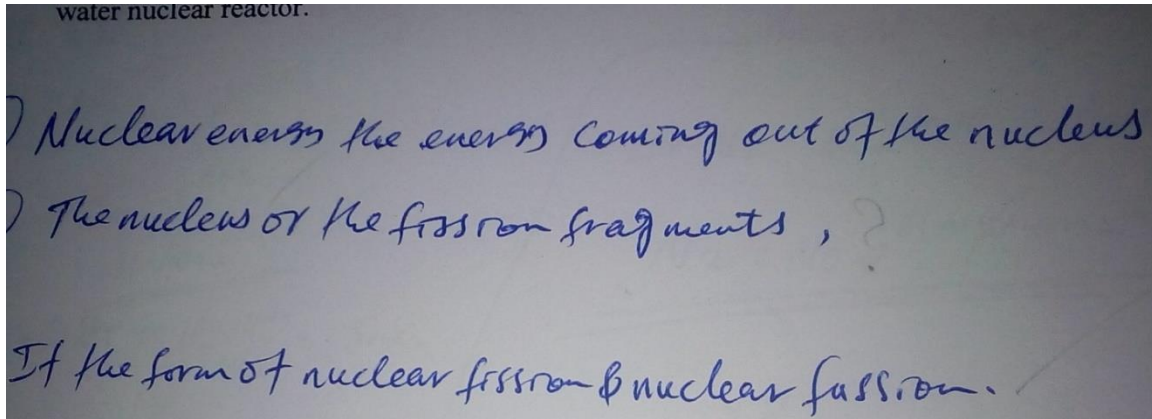 water nuclear reactor.
) Nuclear energy the energy coming out of the nucleus
) The nucleus or the fission fragments , ?
If the form of nuclear fission & nuclear fussion.